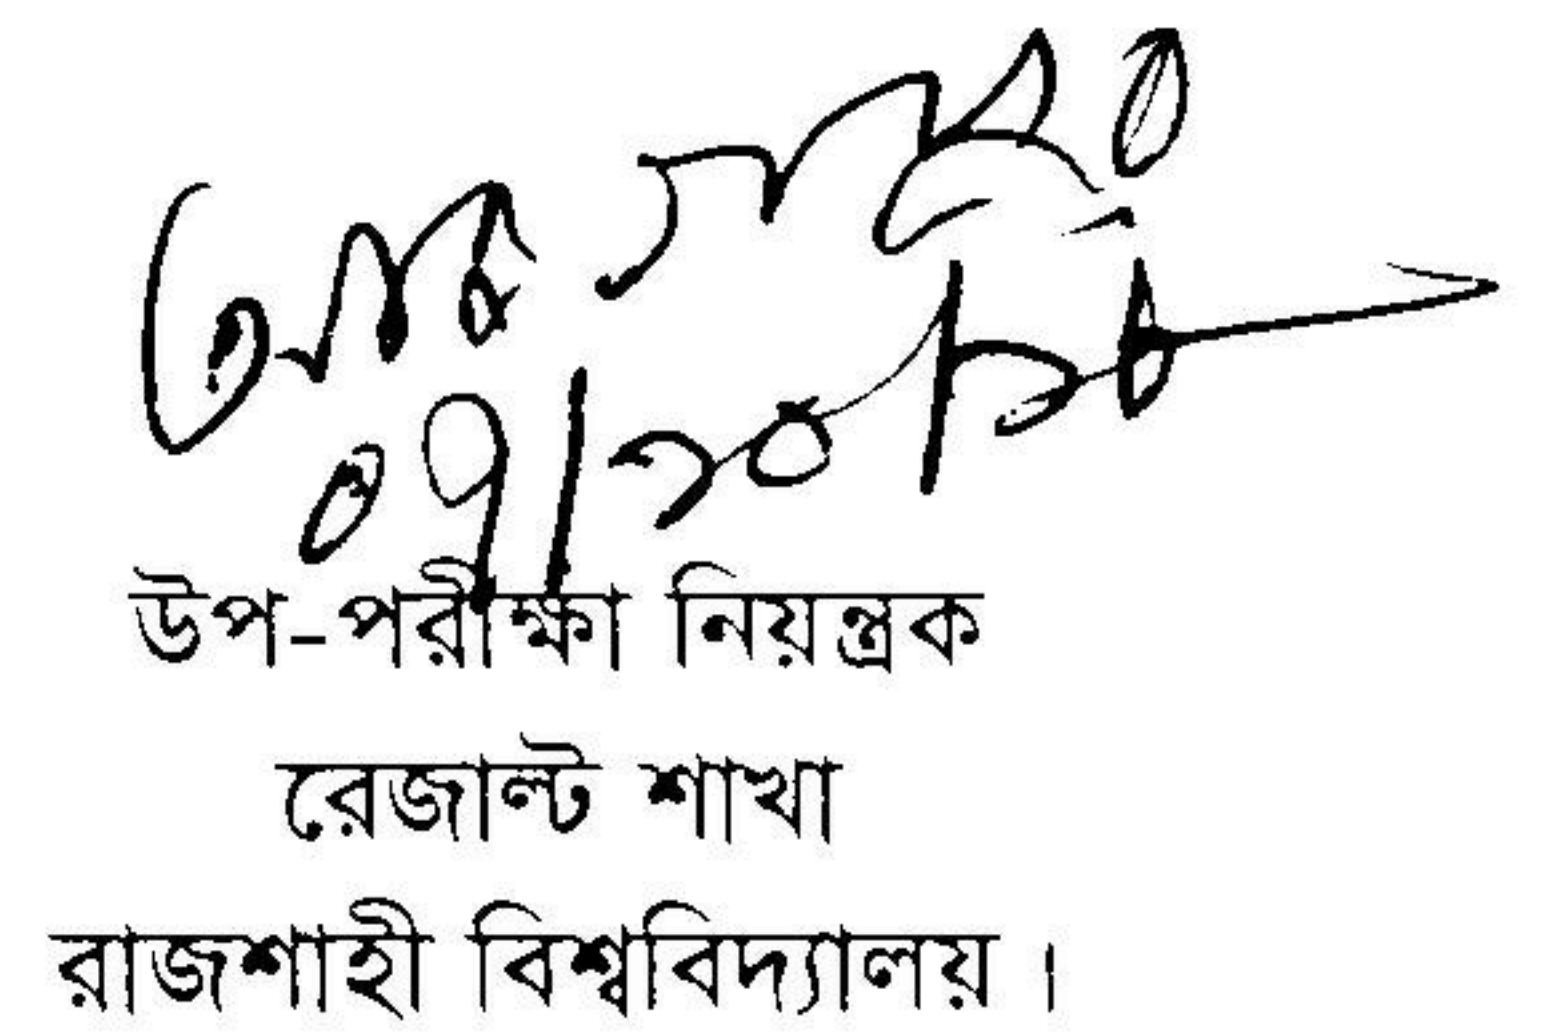 ০৭/১০/১৮
উপ-পরীক্ষা নিয়ন্ত্রক
রেজাল্ট শাখা
রাজশাহী বিশ্ববিদ্যালয় ।